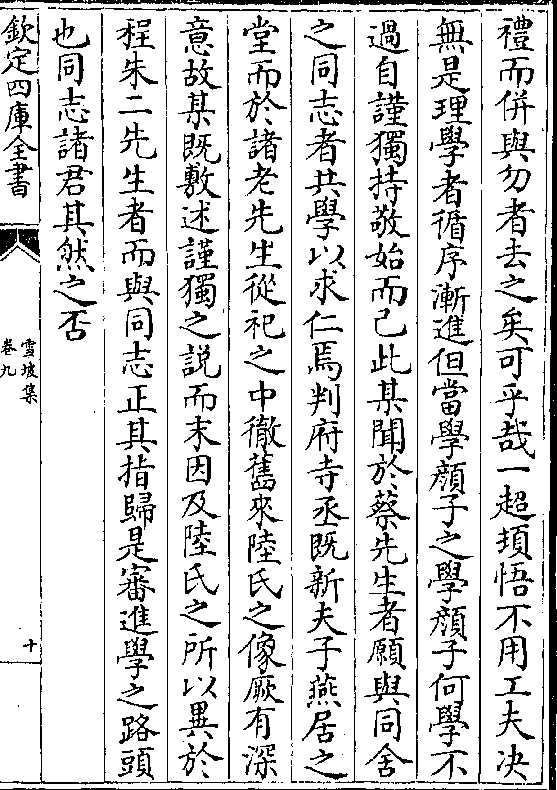 禮而併與勿者去之矣可乎哉一超頓悟不用工夫决
無是理學者循序漸進但當學顔子之學顔子何學不
過自謹獨持敬始而已此某聞於蔡先生者願與同舍
之同志者共學以求仁焉判府寺丞既新夫子燕居之
堂而於諸老先生從祀之中徹舊來陸氏之像厥有深
意故某既敷述謹獨之説而末因及陸氏之所以異於
程朱二先生者而與同志正其指歸是審進學之路頭
也同志諸君其然之否
欽定四庫全書
雪坡集
卷九
十